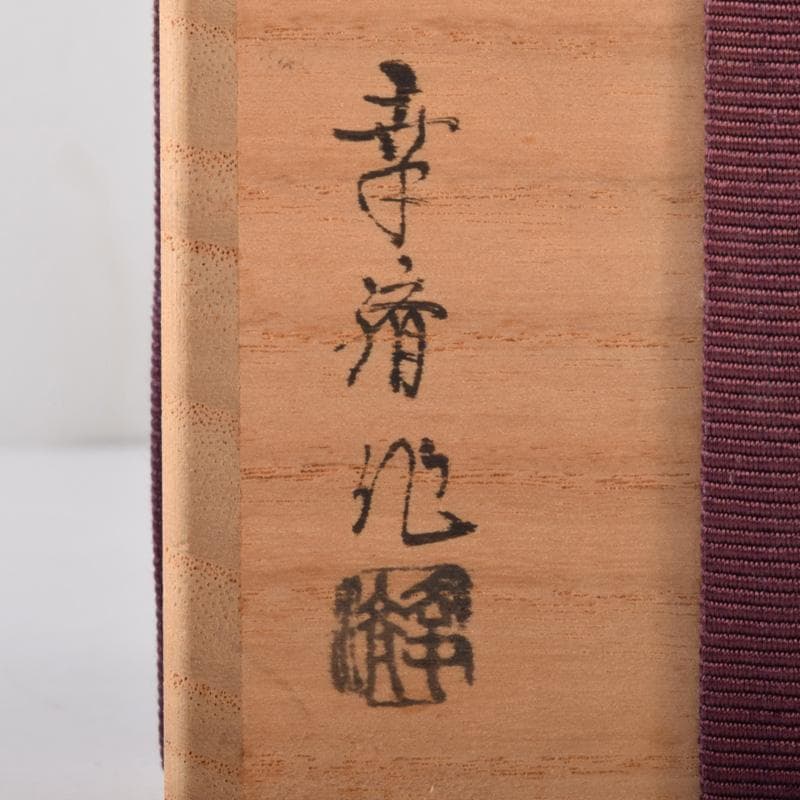 幸斎作